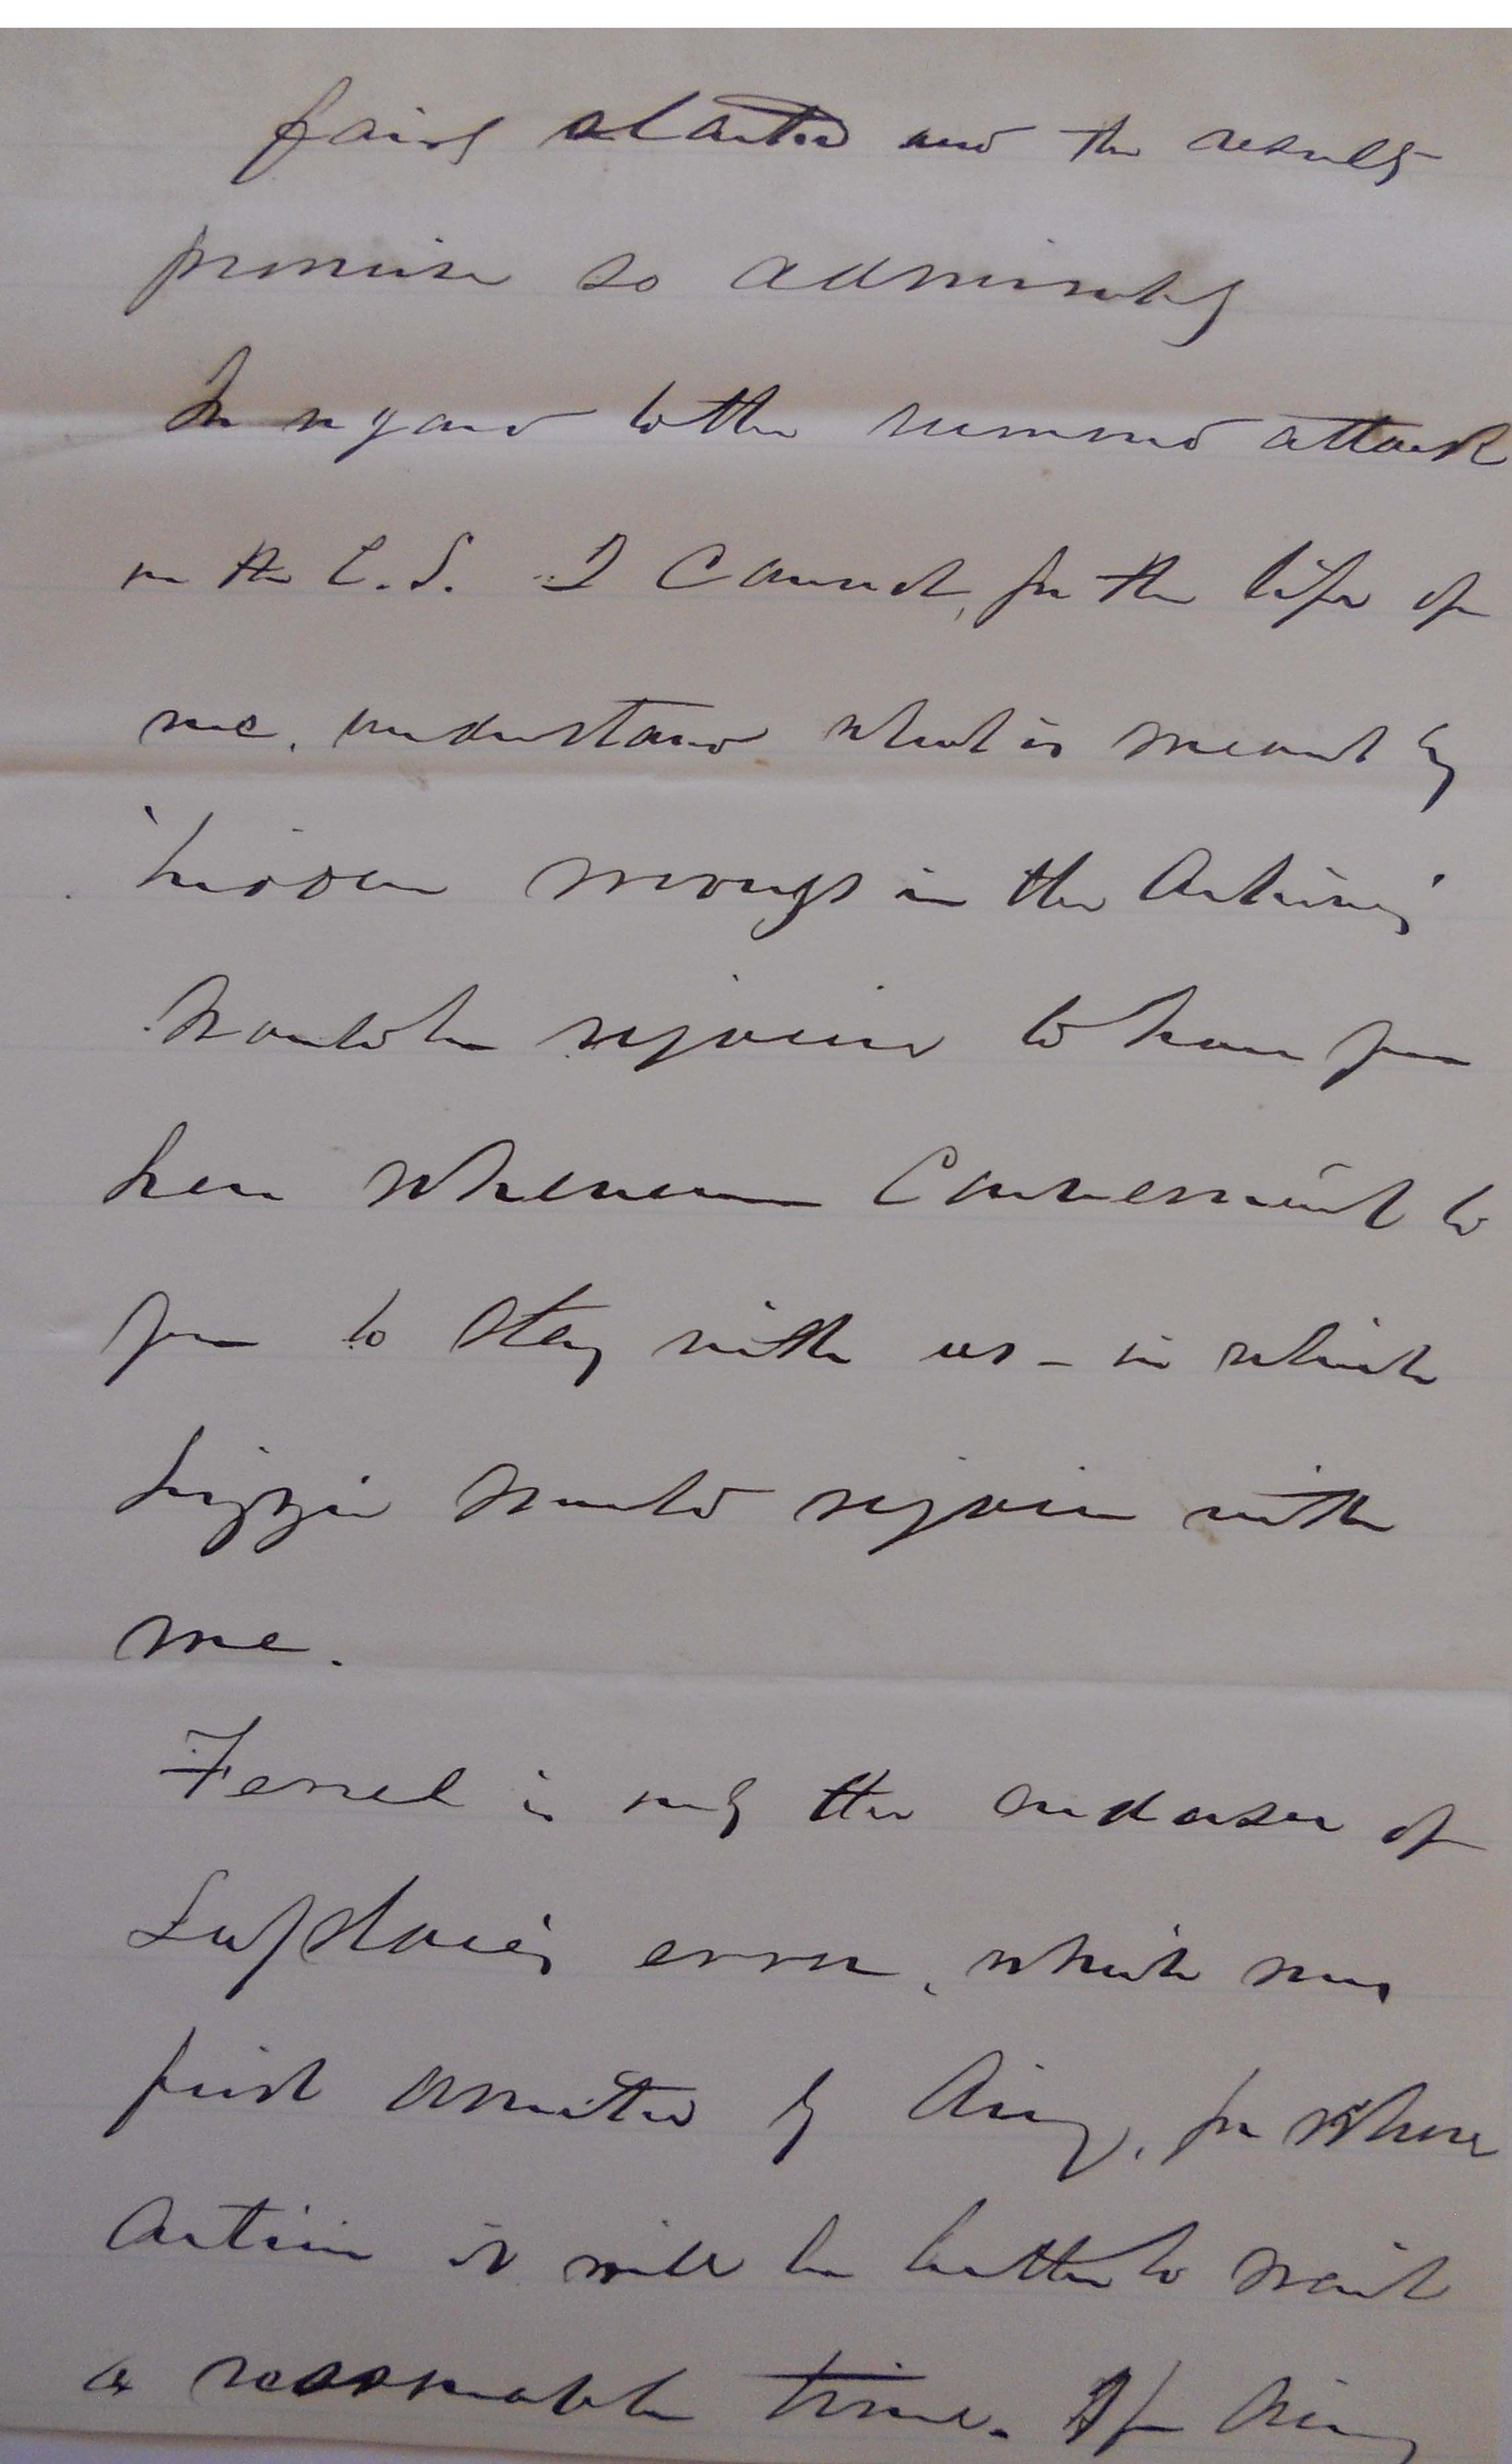 fairly started and the results
promise so admirably
In regard to the rumored attack
on the C.S. I cannot, for the life of
me, understand what is meant by
'hidden wrongs in the Archives'
Would be rejoiced to have you
here whenever convenient to
you to stay with us - in which
Lizzie would rejoice with
me.
Ferrel is only the endorser of
error, which was
first by Airy, for whose
action it will be better to wait
a reasonable time. If Airy